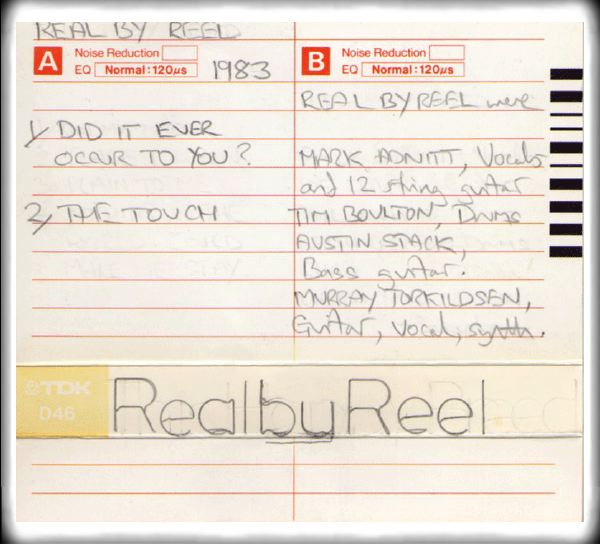 REAL BY REEL
A Noise Reduction
EQ Normal:120µs 1983
1/ DID IT EVER
OCCUR TO YOU?
2/ THE TOUCH
B Noise Reduction
EQ Normal:120µs
REAL BY REEL were
MARK ADNITT, Vocals
and 12 string guitar
TIM BOULTON, Drums
AUSTIN STACK,
Bass guitar.
MURRAY TORKILDSEN,
Guitar, vocal, synth.
TDK
D46
Real by Reel